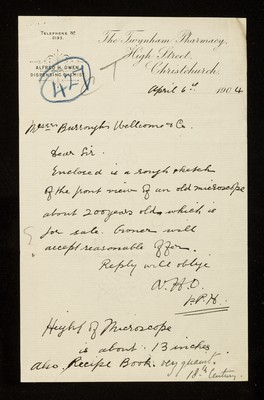 TELEPHONE Nº
The Twynham Pharmacy,
High Street,
Christchurch.
ALFRED H. OWEN,
DISPENSING CHEMIST
April 6th 1904
Messrs Burroughs Wellcome & Co.
Dear Sir.
Enclosed is a rough sketch
of the front view of an old microscope
about 200 years old, which is
for sale. Owner will
accept reasonable offer.
Reply will oblige
A.H.O.
P.P.H.
Hight of Microscope
is about 13 inches
also Recipe Book. very quaint.
18th Century.